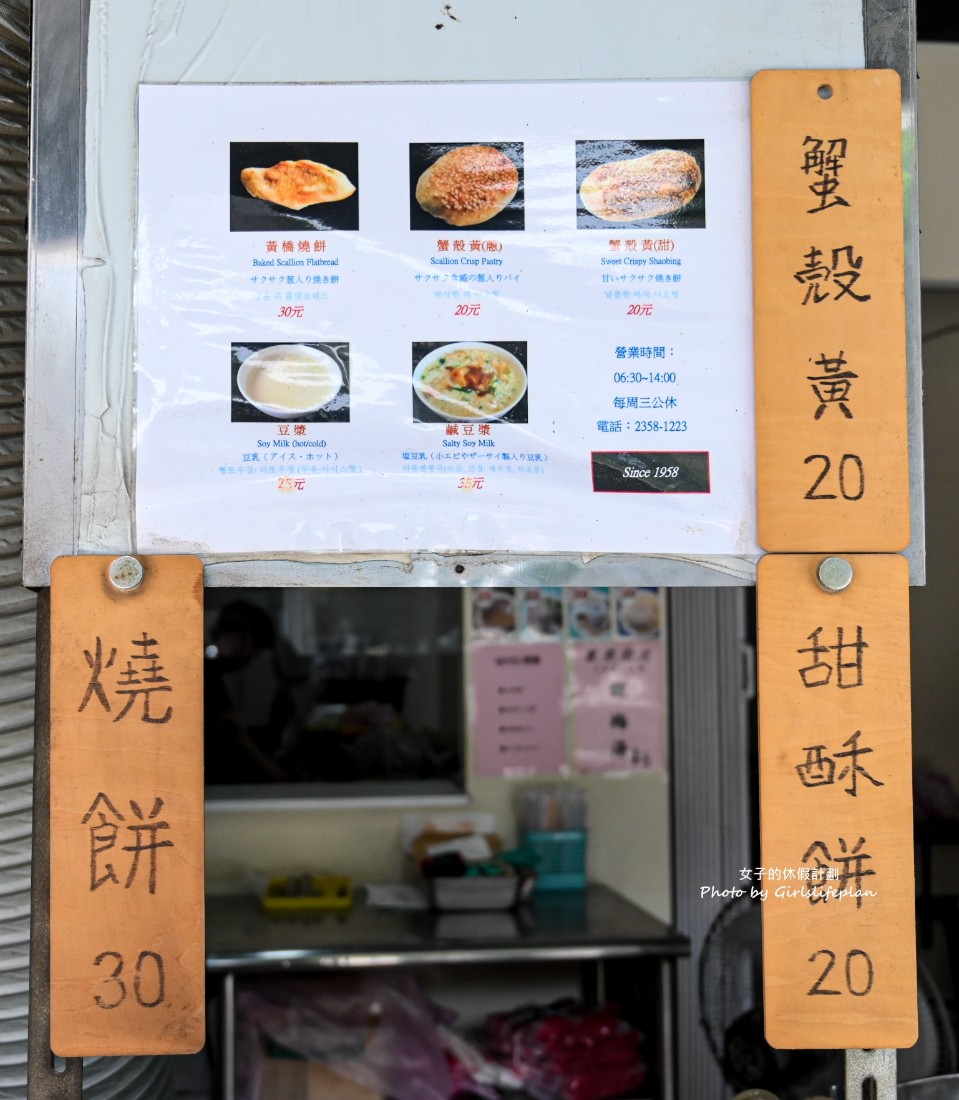 黃橋燒餅
Baked Scallion Flatbread
サクサク葱入り焼き餅
30元
蟹殼黃(蔥)
Scallion Crisp Pastry
サクサク食感の葱入りパイ
20元
蟹殼黃(甜)
Sweet Crispy Shaobing
甘いサクサク焼き餅
20元
豆漿
Soy Milk (hot/cold)
豆乳（アイス・ホット）
25元
鹹豆漿
Salty Soy Milk
塩豆乳（小エビやザーサイ製入り豆乳）
35元
營業時間：
06:30~14:00
每周三公休
電話：2358-1223
Since 1958
蟹殼黃
20
燒餅
30
甜酥餅
20
女子的休假計劃
Photo by Girlslifeplan